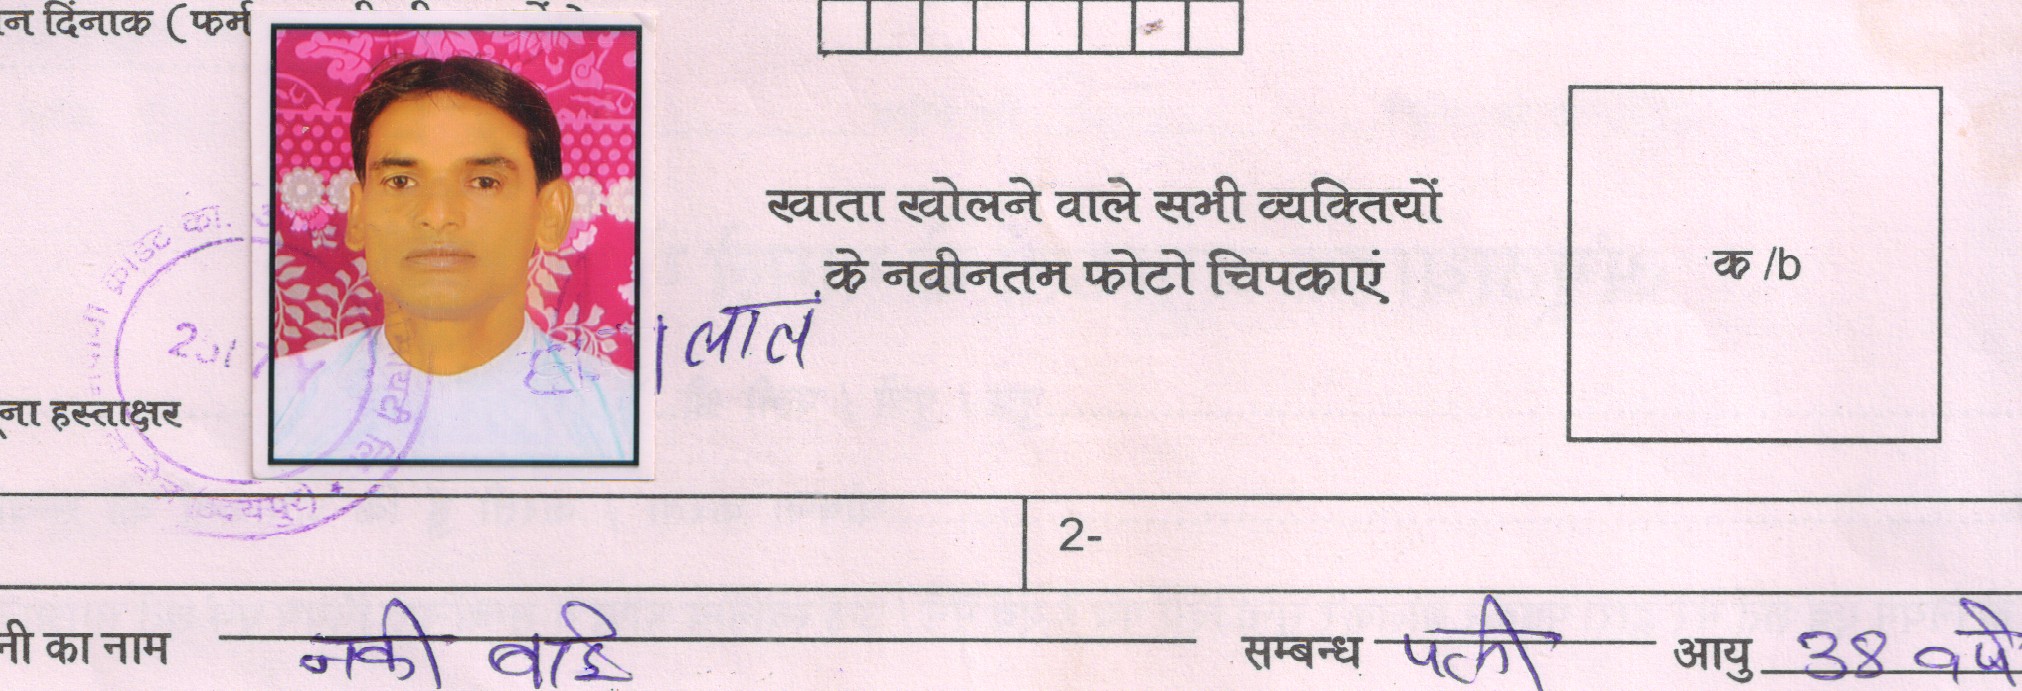 न दिंनाक (फर्म
खाता खोलने वाले सभी व्यक्तियों
के नवीनतम फोटो चिपकाएं
क /b
लाल
ना हस्ताक्षर
2-
नी का नाम नकी बाई सम्बन्ध पत्नी आयु 38 वर्ष